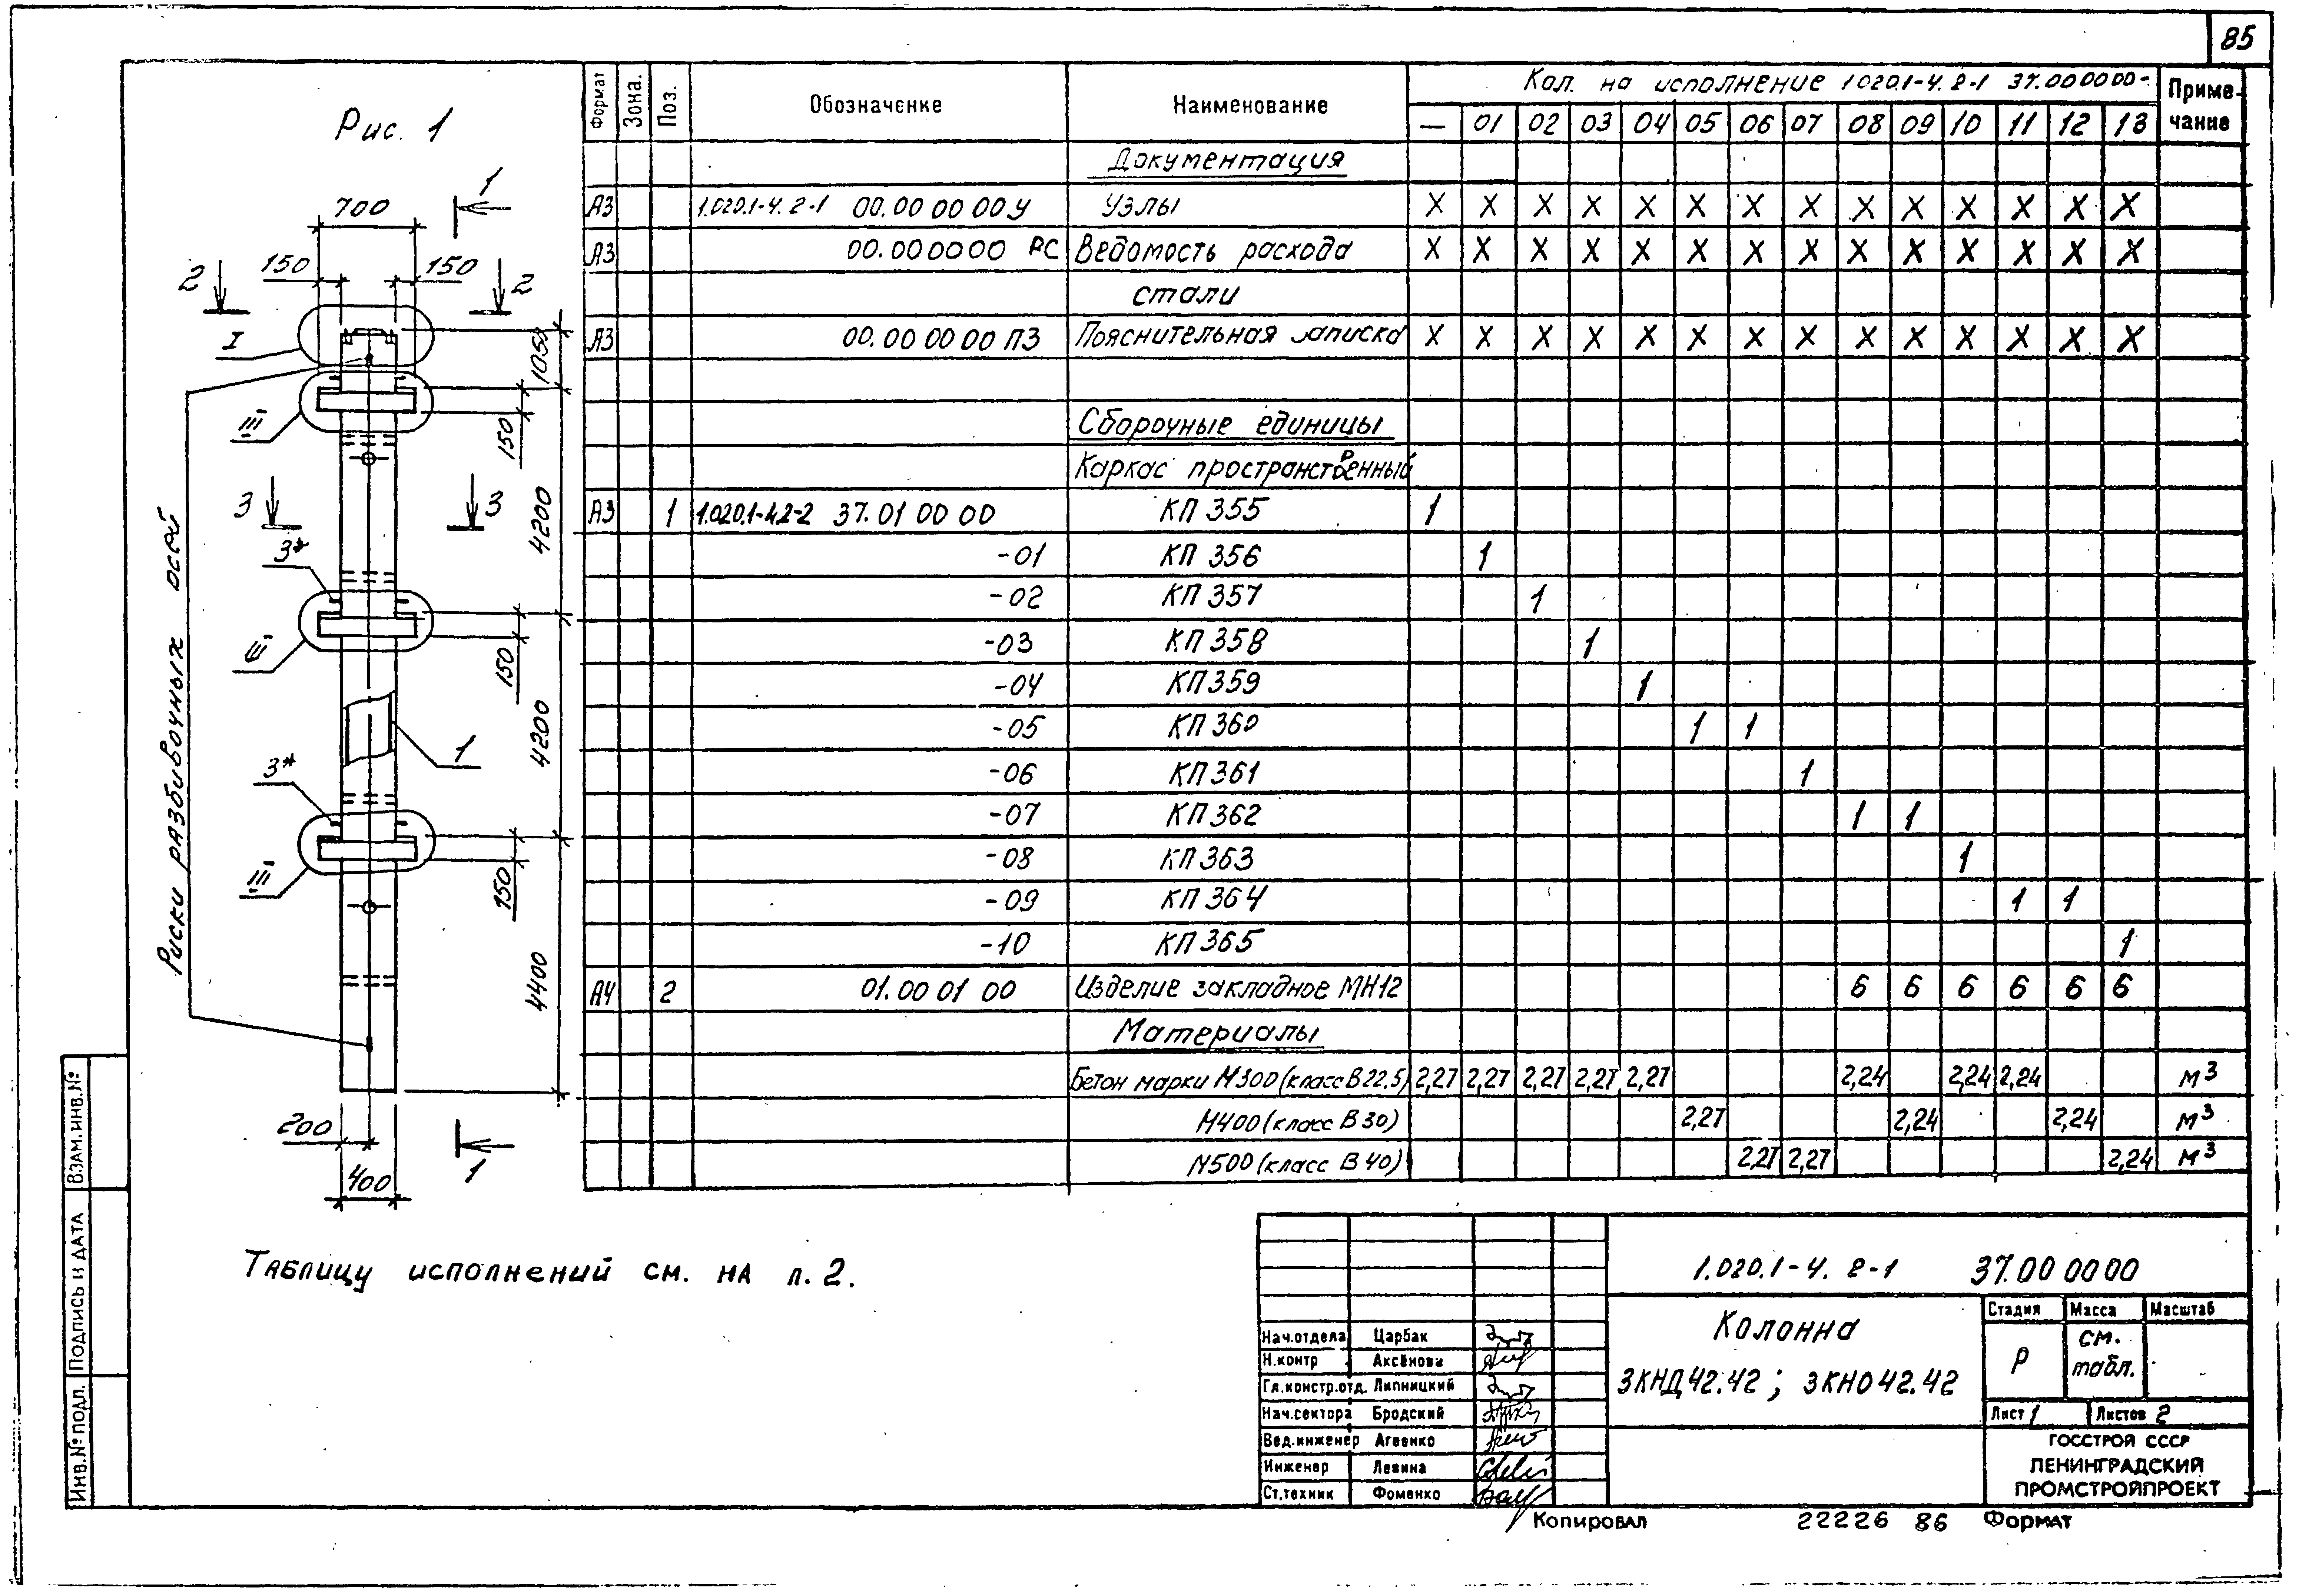 85
Рис. 1
Формат Зона. Поз. Обозначение Наименование Кол. на исполнение 1.020.1-4.2-1 37.000000- Приме-чание
— 01 02 03 04 05 06 07 08 09 10 11 12 13
Документация
А3 1.020.1-4.2-1 00.00 00 00 У Узлы X X X X X X X X X X X X X X
А3 00.00 00 00 РС Ведомость расхода X X X X X X X X X X X X X X
стали
А3 00.00 00 00 ПЗ Пояснительная записка X X X X X X X X X X X X X X
Сборочные единицы
Каркас пространственный
А3 1 1.020.1-4.2-2 37.01 00 00 КП 355 1
-01 КП 356 1
-02 КП 357 1
-03 КП 358 1
-04 КП 359 1
-05 КП 360 1 1
-06 КП 361 1
-07 КП 362 1 1
-08 КП 363 1
-09 КП 364 1 1
-10 КП 365 1
А4 2 01.00 01 00 Изделие закладное МН12 6 6 6 6 6 6
Материалы
Бетон марки М300 (класс В22,5) 2,27 2,27 2,27 2,27 2,27 2,24 2,24 2,24 м³
М400 (класс В30) 2,27 2,24 2,24 м³
М500 (класс В40) 2,27 2,27 2,24 м³
1
700
150 150
2 2
I
1050
III
150
3 3
4200
3*
III
150
4200
1
3*
III
150
4400
Риски разбивочных осей
200
400
1
Таблицу исполнений см. на л. 2.
Взам.инв.№
Подпись и дата
Инв.№ подл.
1.020.1-4. 2-1 37.00 00 00
Колонна
3КНД42.42; 3КНО42.42
Стадия Масса Масштаб
Р см. табл.
Лист 1 Листов 2
ГОССТРОЙ СССР
ЛЕНИНГРАДСКИЙ
ПРОМСТРОЙПРОЕКТ
Нач.отдела Царбак
Н.контр Аксёнова
Гл.констр.отд. Липницкий
Нач.сектора Бродский
Вед.инженер Агеенко
Инженер Левина
Ст.техник Фоменко
Копировал 22226 86 Формат